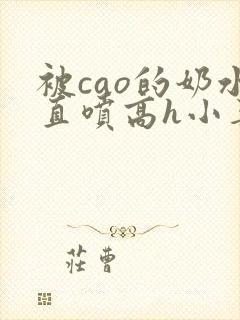 被cao的奶水
直喷高h小
莊曹